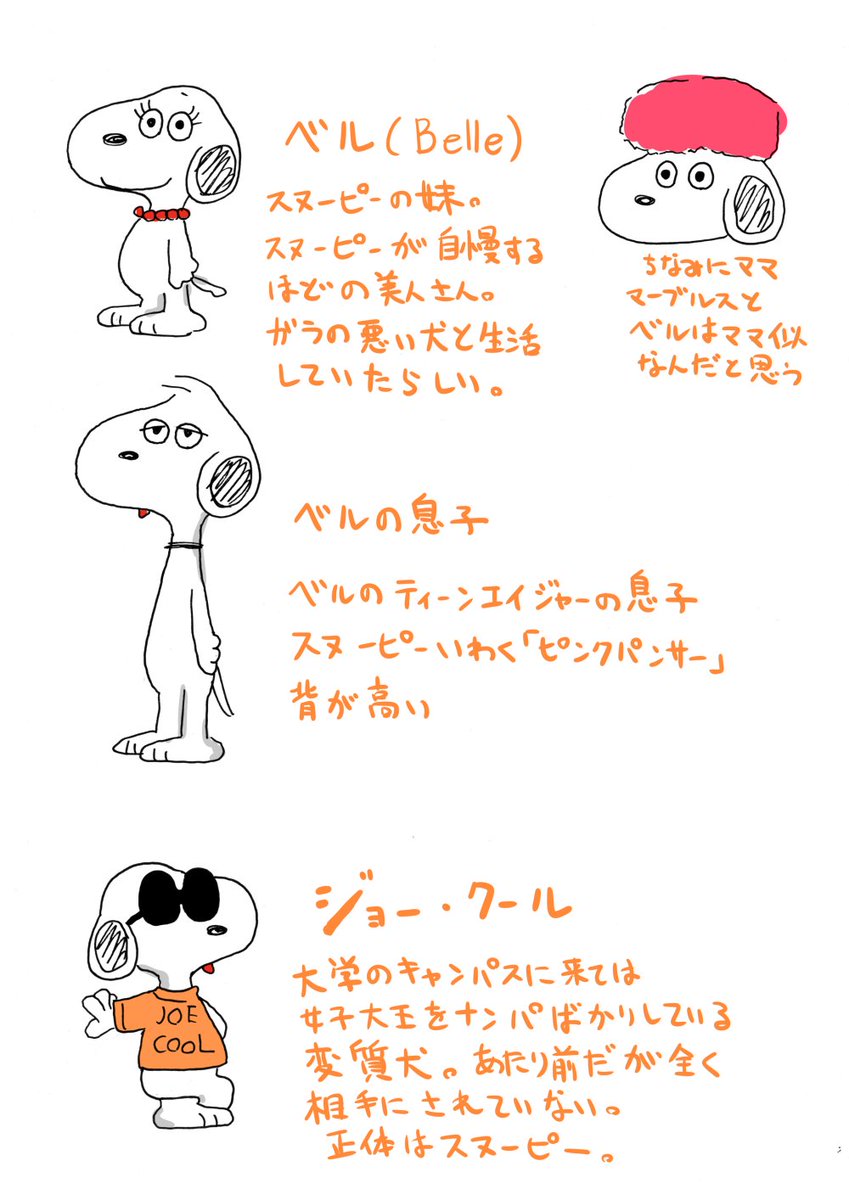 ベル(Belle)
スヌーピーの妹。
スヌーピーが自慢する
ほどの美人さん。
ガラの悪い犬と生活
していたらしい。
ちなみにママ
マーブルスと
ベルはママ似
なんだと思う
ベルの息子
ベルのティーンエイジャーの息子
スヌーピーいわく「ピンクパンサー」
背が高い
ジョー・クール
大学のキャンパスに来ては
女子大王をナンパばかりしている
変質犬。あたり前だが全く
相手にされていない。
正体はスヌーピー。
JOE
COOL